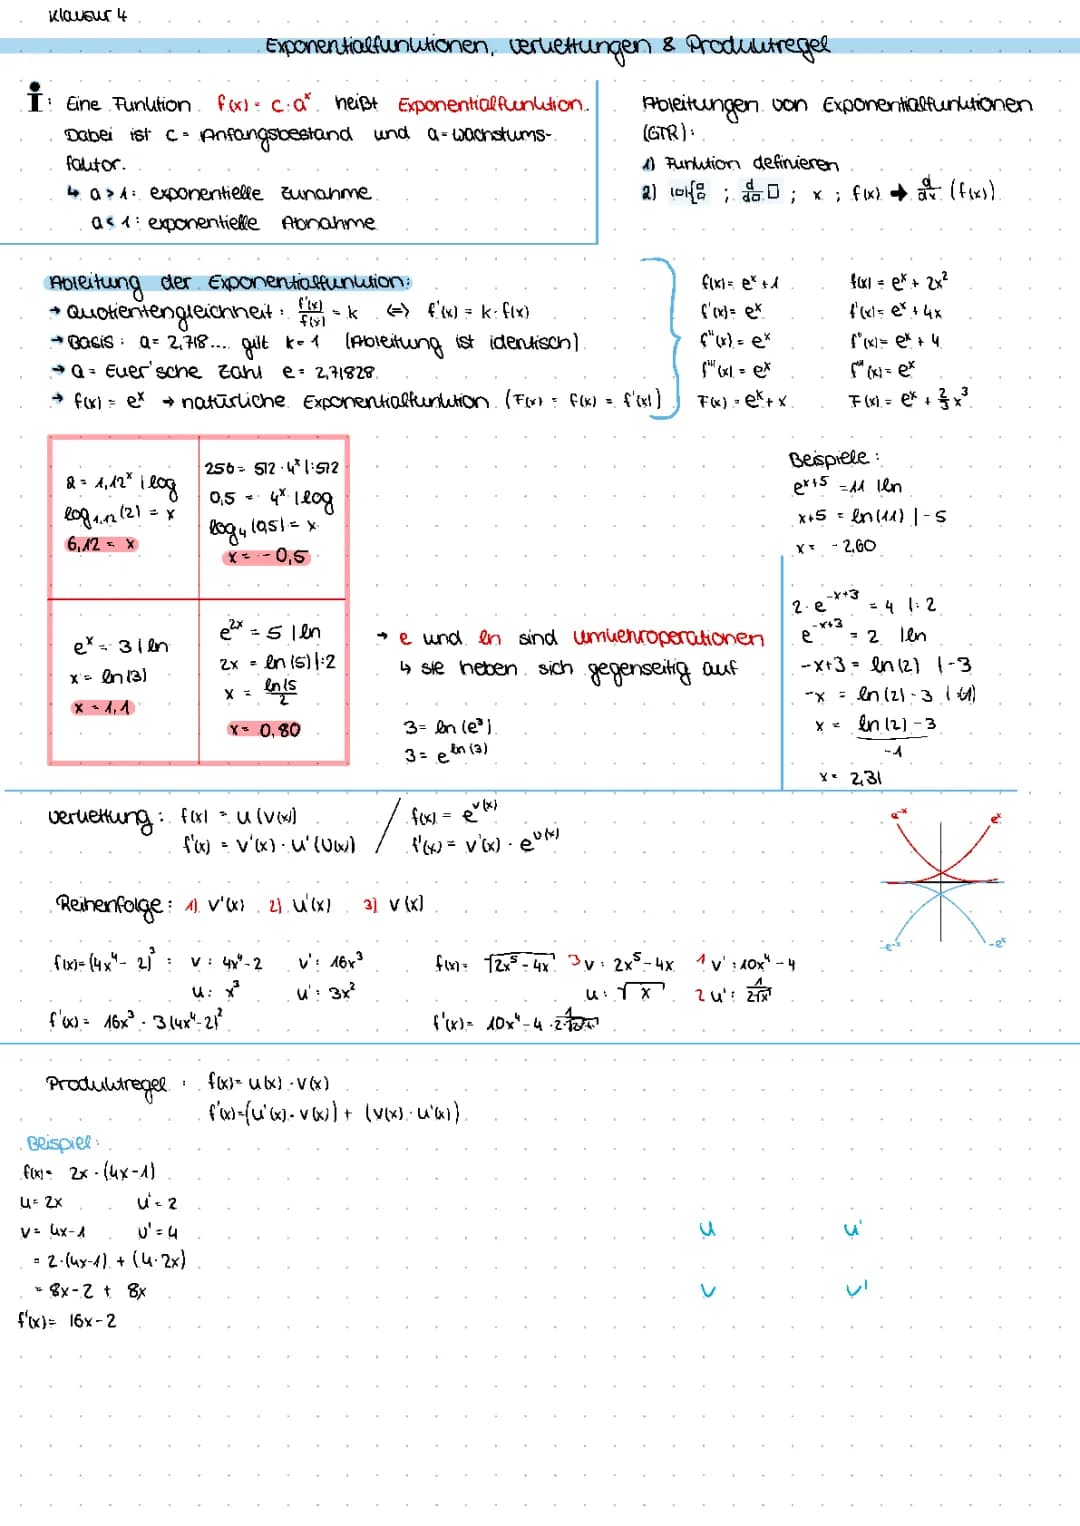 Klausur 4
Exponentialfunktionen, Verkettungen & Produktregel
i: Eine Funktion f(x) = c·aˣ heißt Exponentialfunktion.
Dabei ist c = Anfangsbestand und a = Wachstums-
faktor.
↳ a > 1: exponentielle Zunahme
a < 1: exponentielle Abnahme
Ableitungen von Exponentialfunktionen
(GTR):
1) Funktion definieren
2) ; d/d□ □ ; x ; f(x) → d/dx (f(x))
Ableitung der Exponentialfunktion:
→ Quotientengleichheit: f'(x)/f(x) = k ⇔ f'(x) = k·f(x)
→ Basis: a = 2,718... gilt k = 1 (Ableitung ist identisch)
→ a = Euer'sche Zahl e = 2,71828
→ f(x) = eˣ → natürliche Exponentialfunktion (F(x) = f(x) = f'(x))
f(x) = eˣ + 1
f'(x) = eˣ
f''(x) = eˣ
f'''(x) = eˣ
F(x) = eˣ + x
f(x) = eˣ + 2x²
f'(x) = eˣ + 4x
f''(x) = eˣ + 4
f'''(x) = eˣ
F(x) = eˣ + 2/3 x³
2 = 1,12ˣ | log
log₁,₁₂(2) = x
6,12 = x
256 = 512·4ˣ |:512
0,5 = 4ˣ | log
log₄(0,5) = x
x = -0,5
eˣ = 3 | ln
x = ln(3)
x = 1,1
e²ˣ = 5 | ln
2x = ln(5) |:2
x = ln(5/2
x = 0,80
→ e und ln sind Umkehroperationen
↳ sie heben sich gegenseitig auf
3 = ln(e³)
3 = e^ln(3)
Beispiele:
e^x+5 = 11 | ln
x+5 = ln(11) | -5
x = -2,60
2·e^-x+3 = 4 |:2
e^-x+3 = 2 | ln
-x+3 = ln(2) | -3
-x = ln(2) - 3 | (-1)
x = ln(2)-3/-1
x = 2,31
Verkettung: f(x) = u(v(x))
f'(x) = v'(x)·u'(v(x))
/ f(x) = e^v(x)
f'(x) = v'(x)·e^v(x)
e⁻ˣ
eˣ
-e⁻ˣ
-eˣ
Reihenfolge: 1) v'(x) 2) u'(x) 3) v(x)
f(x) = (4x⁴ - 2)³ : v: 4x⁴-2 v': 16x³
u: x³ u': 3x²
f'(x) = 16x³ · 3(4x⁴-2)²
f(x) = √2x⁵-4x 3 v: 2x⁵-4x 1 v': 10x⁴-4
u: √x 2 u': 1/2√x
f'(x) = 10x⁴-4 · 1/2·√2x⁵-4x
Produktregel: f(x) = u(x)·v(x)
f'(x) = (u'(x)·v(x)) + (v(x)·u'(x))
Beispiel:
f(x) = 2x·(4x-1)
u = 2x u' = 2
v = 4x-1 v' = 4
= 2·(4x-1) + (4·2x)
= 8x-2 + 8x
f'(x) = 16x-2
u u'
v v'